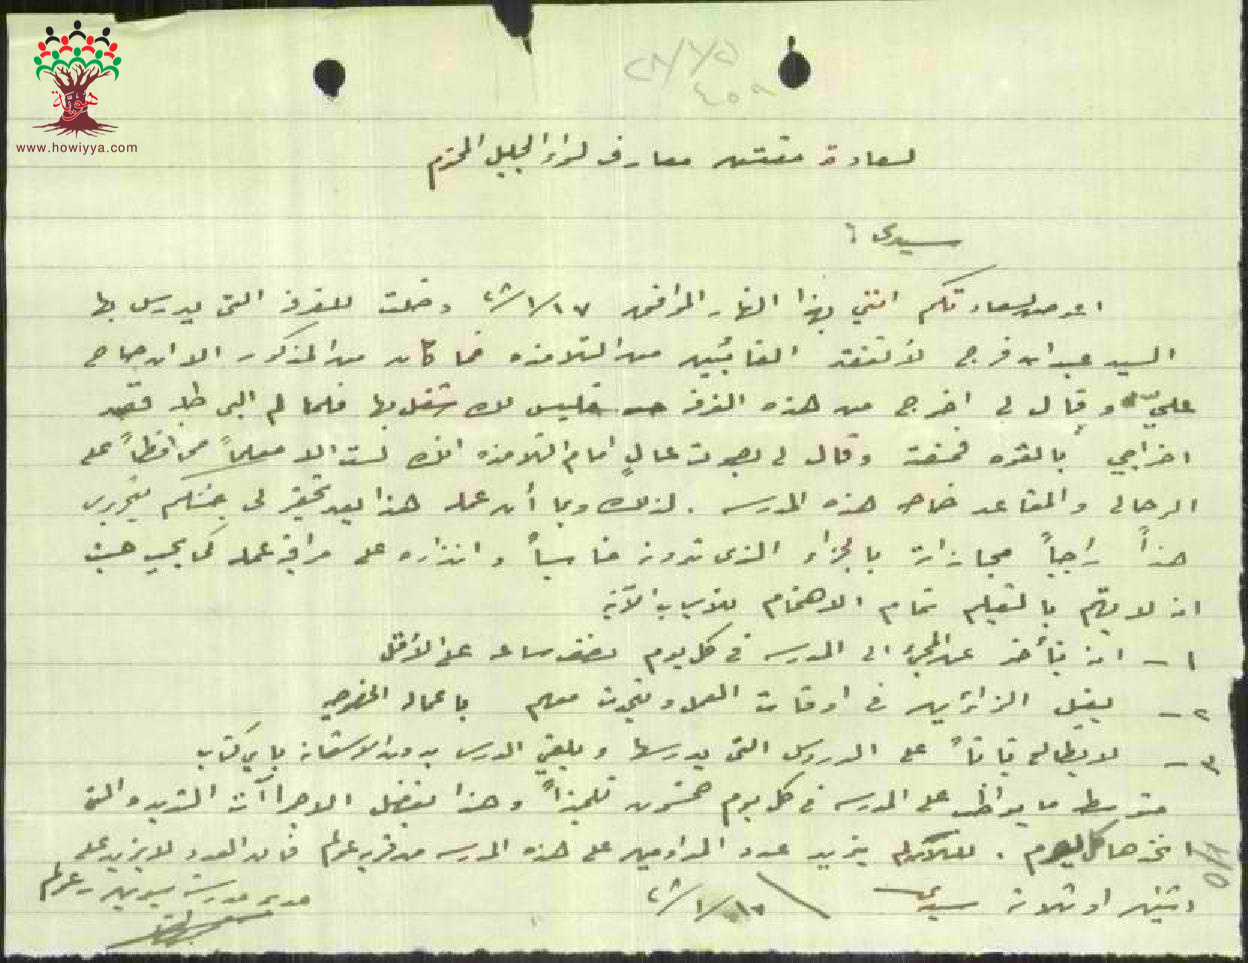 هوية
www.howiyya.com
٢٨/٧٥
٤٥٩
لسعادة مفتش معارف لواء الجليل المحترم
سيدي :
اعرض لسعادتكم انني بهذا النهار الموافق ١٧/١/٢٨ دخلت للغرفة التي يدرس بها
السيد عبدان فرج لأتفقد الغائبين من التلامذه فما كان من المذكور الا ان صاح
علي وقال لي اخرج من هذه الغرفة فليس لك شغل بها فلما لم البي طلبه قصد
اخراجي بالقوه فمنعته وقال لي بصوت عالٍ امام التلامذه انك لست الا معلماً محافظاً على
والمقاعد هذه المدرسه . لذلك وبما أن عمله هذا يعد تحقير لي جئتكم بتحريري
هذا راجياً مجازاته بالجزاء الذي ترونه مناسباً وانذاره على مراقبة عمله كما يجب حيث
انه لا يهتم بالتعليم تمام الاهتمام للاسباب الآتيه
١ - انه يتأخر عن المجيء الى المدرسه في كل يوم نصف ساعه على الأقل
٢ - يقبل الزائرين في اوقات العمل ويتحدث معهم باعماله الخصوصيه
٣ - لا يطالع على الدروس التي يدرسها ويلقي الدرس بدون الاستعانه باي كتاب
متوسط ما يواظب على المدرسه في كل يوم خمسون تلميذاً وهذا بفضل الاجراآت الشديده التي
اتخذها كل يوم . يزيد عدد المداومين على هذه المدرسه من قرية عولم فان العدد لا يزيد على
اثنين او ثلاثة سيدي ١٧/١/٢٨ مدير مدرسة سيرين وعولم